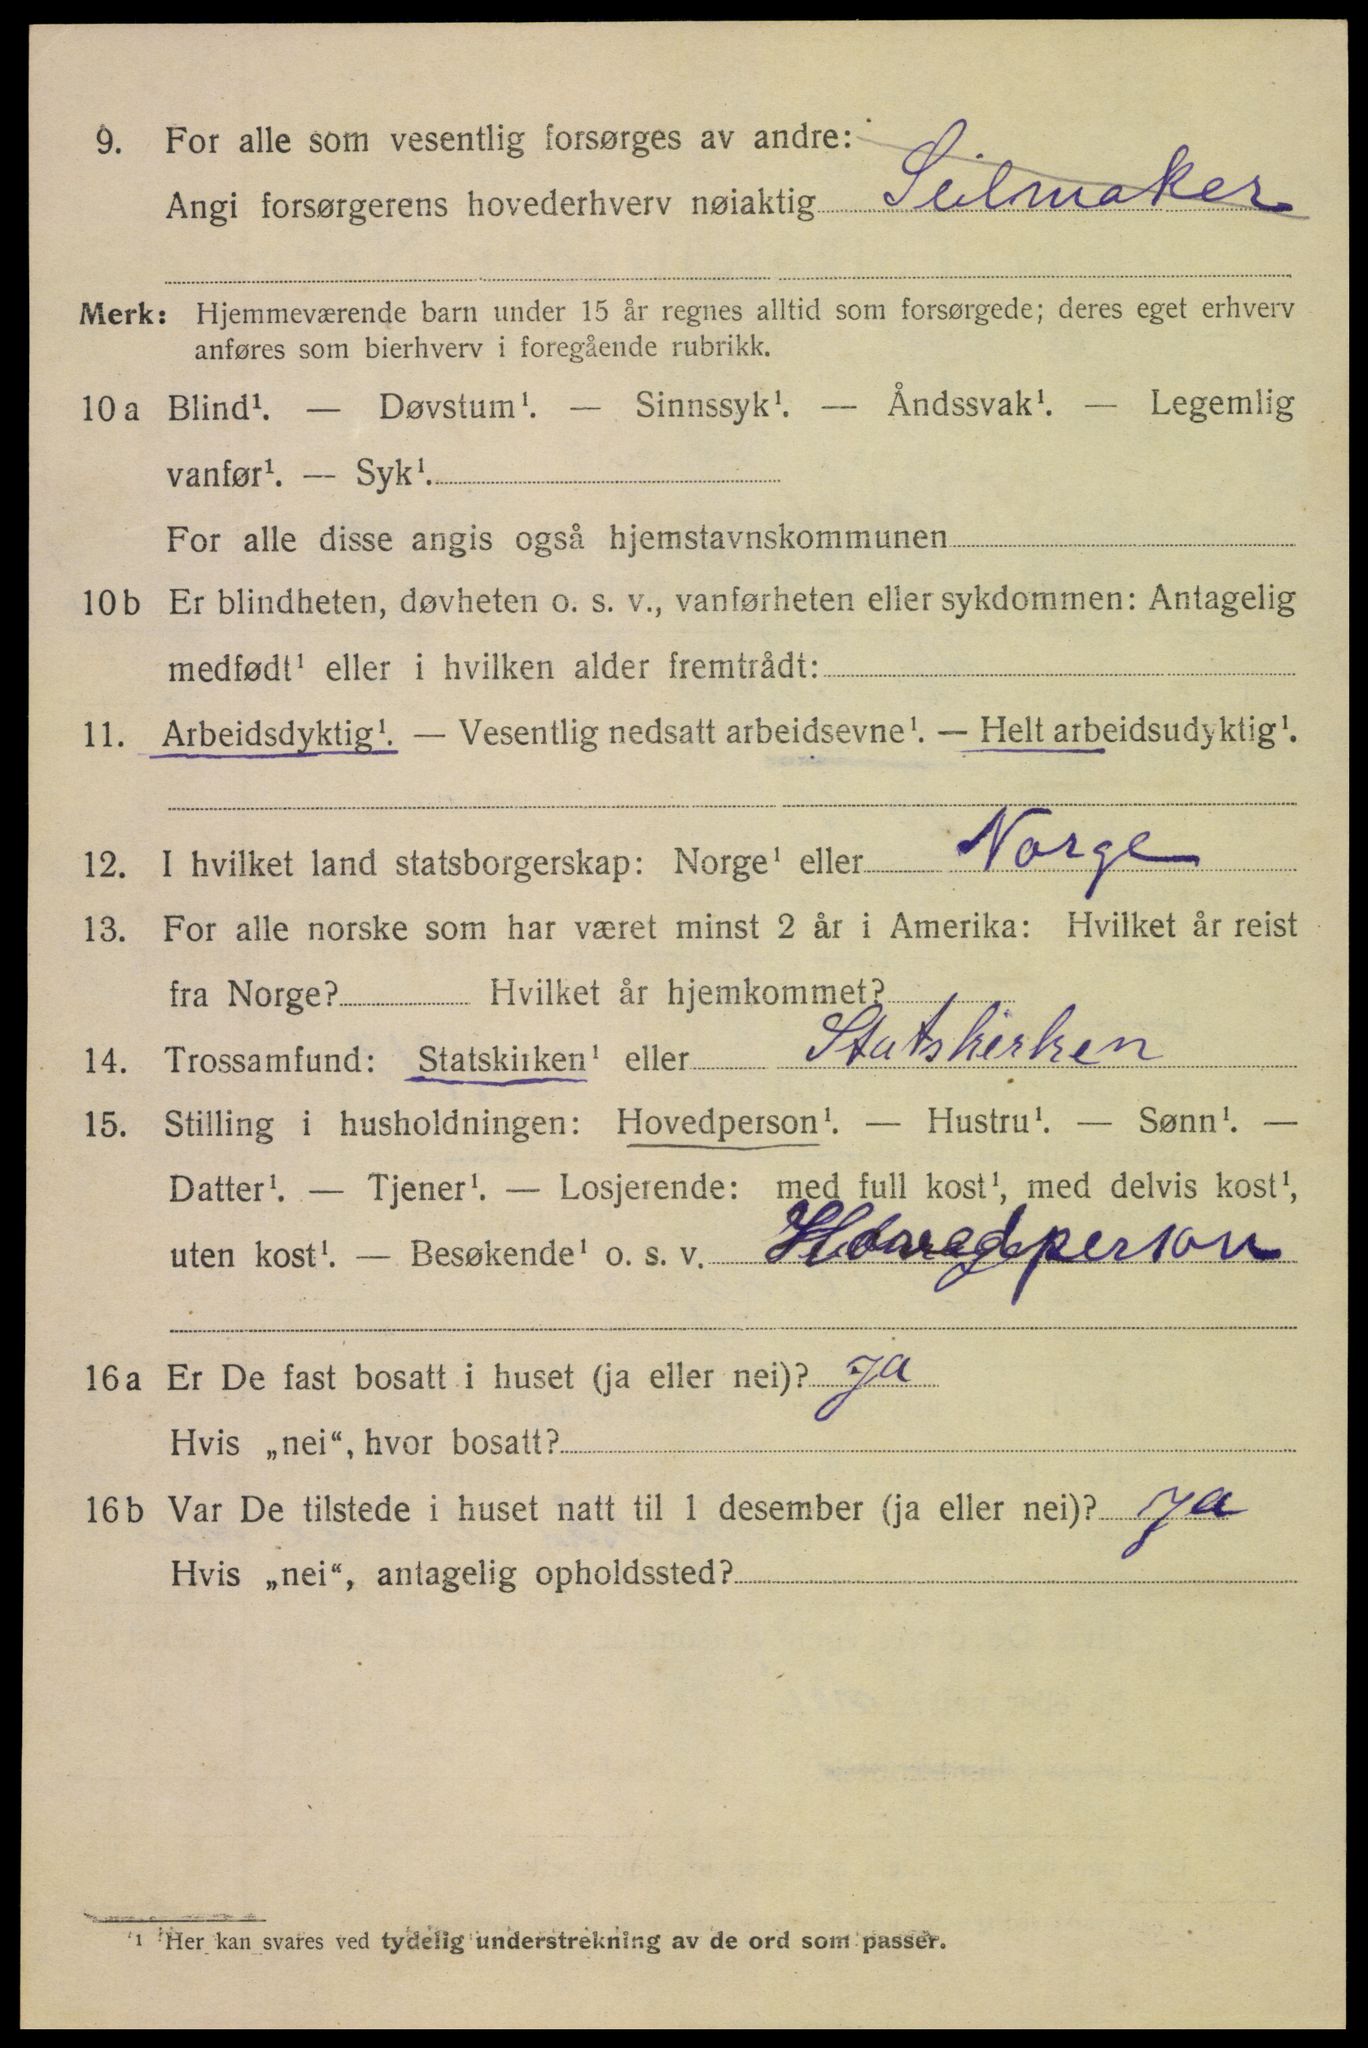 9. For alle som vesentlig forsørges av andre:
Angi forsørgerens hovederhverv nøiaktig Seilmaker
Merk: Hjemmeværende barn under 15 år regnes alltid som forsørgede; deres eget erhverv
anføres som bierhverv i foregående rubrikk.
10 a Blind¹. — Døvstum¹. — Sinnssyk¹. — Åndssvak¹. — Legemlig
vanfør¹. — Syk¹.
For alle disse angis også hjemstavnskommunen
10 b Er blindheten, døvheten o. s. v., vanførheten eller sykdommen: Antagelig
medfødt¹ eller i hvilken alder fremtrådt:
11. Arbeidsdyktig¹. — Vesentlig nedsatt arbeidsevne¹. — Helt arbeidsudyktig¹.
12. I hvilket land statsborgerskap: Norge¹ eller Norge
13. For alle norske som har været minst 2 år i Amerika: Hvilket år reist
fra Norge? Hvilket år hjemkommet?
14. Trossamfund: Statskirken¹ eller Statskirken
15. Stilling i husholdningen: Hovedperson¹. — Hustru¹. — Sønn¹. —
Datter¹. — Tjener¹. — Losjerende: med full kost¹, med delvis kost¹,
uten kost¹. — Besøkende¹ o. s. v. Hovedperson
16 a Er De fast bosatt i huset (ja eller nei)? ja
Hvis „nei“, hvor bosatt?
16 b Var De tilstede i huset natt til 1 desember (ja eller nei)? ja
Hvis „nei“, antagelig opholdssted?
¹ Her kan svares ved tydelig understrekning av de ord som passer.